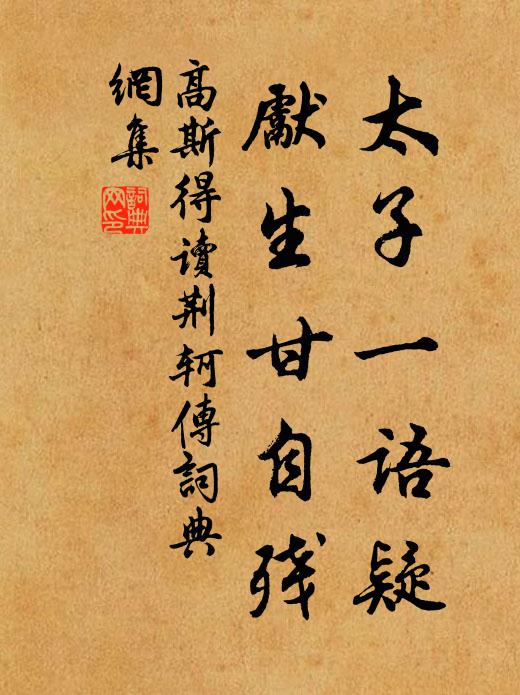 太子一語疑
獻生甘自残
高斯得讀荆軻傳詞典
網集
詞典
网印